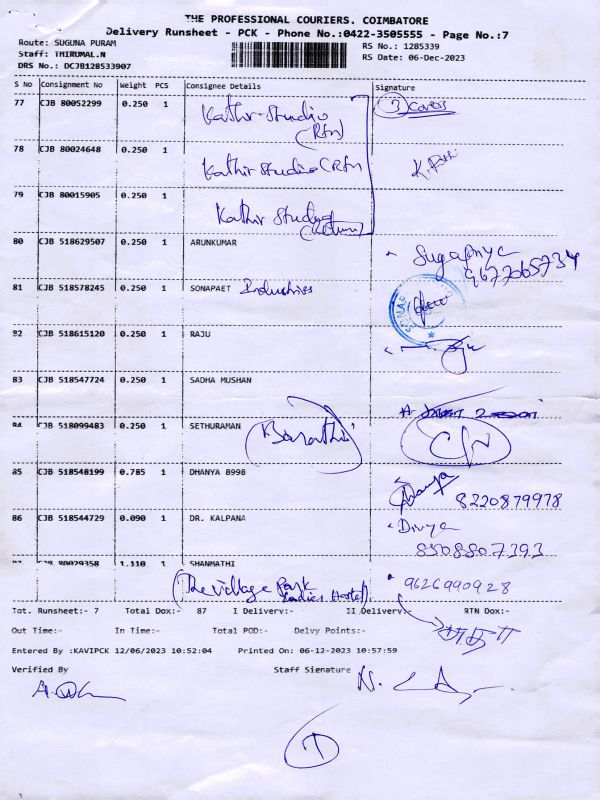 THE PROFESSIONAL COURIERS. COIMBATORE
Delivery Runsheet - PCK - Phone No.:0422-3505555 - Page No.:7
Route: SUGUNA PURAM
RS No.: 1285339
Staff: THIRUMAL.N
RS Date: 06-Dec-2023
DRS No.: DCJB128533907
S No Consignment No Weight PCS Consignee Details Signature
77 CJB 80052299 0.250 1 Kathir Studio (Rtn) 3 Covers
78 CJB 80024648 0.250 1 Kathir Studio (Rtn
79 CJB 80015905 0.250 1 Kathir Studio (Return)
80 CJB 518629507 0.250 1 ARUNKUMAR
9677065734
81 CJB 518578245 0.250 1 SONAPAET Industries
82 CJB 518615120 0.250 1 RAJU
83 CJB 518547724 0.250 1 SADHA MUSHAN
84 CJB 518099483 0.250 1 SETHURAMAN C/N
85 CJB 518548199 0.785 1 DHANYA 8998 8220879978
86 CJB 518544729 0.090 1 DR. KALPANA Divya
8508807393
87 CJB 80029358 1.110 1 SHANMATHI
(The Village Park Ladies Hostel) 9626990928
Tot. Runsheet:- 7 Total Dox:- 87 I Delivery:- II Delivery:- RTN Dox:-
Out Time:- In Time:- Total POD:- Delvy Points:-
Entered By :KAVIPCK 12/06/2023 10:52:04 Printed On: 06-12-2023 10:57:59
Verified By Staff Signature
7